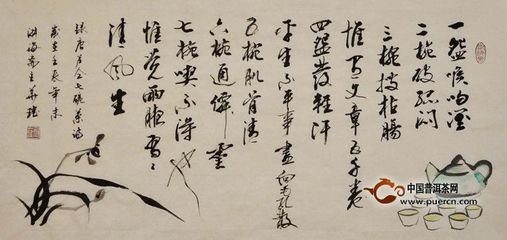 一盌喉吻潤
二椀破孤悶
三椀搜枯腸
惟有文章五千卷
四盌發輕汗
平生不平事盡向毛孔散
五椀肌骨清
六椀通僊靈
七椀喫不得也
惟覺兩腋習〻
清風生
錄唐盧仝七碗茶詩
歲在壬辰年末
中国普洱茶网
www.puercn.com